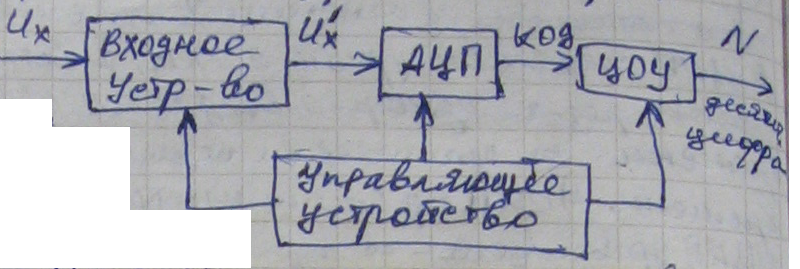 Uх
Входное
Устр-во
U'х
АЦП
код
ЦОУ
N
десятич.
цифра
Управляющее
устройство